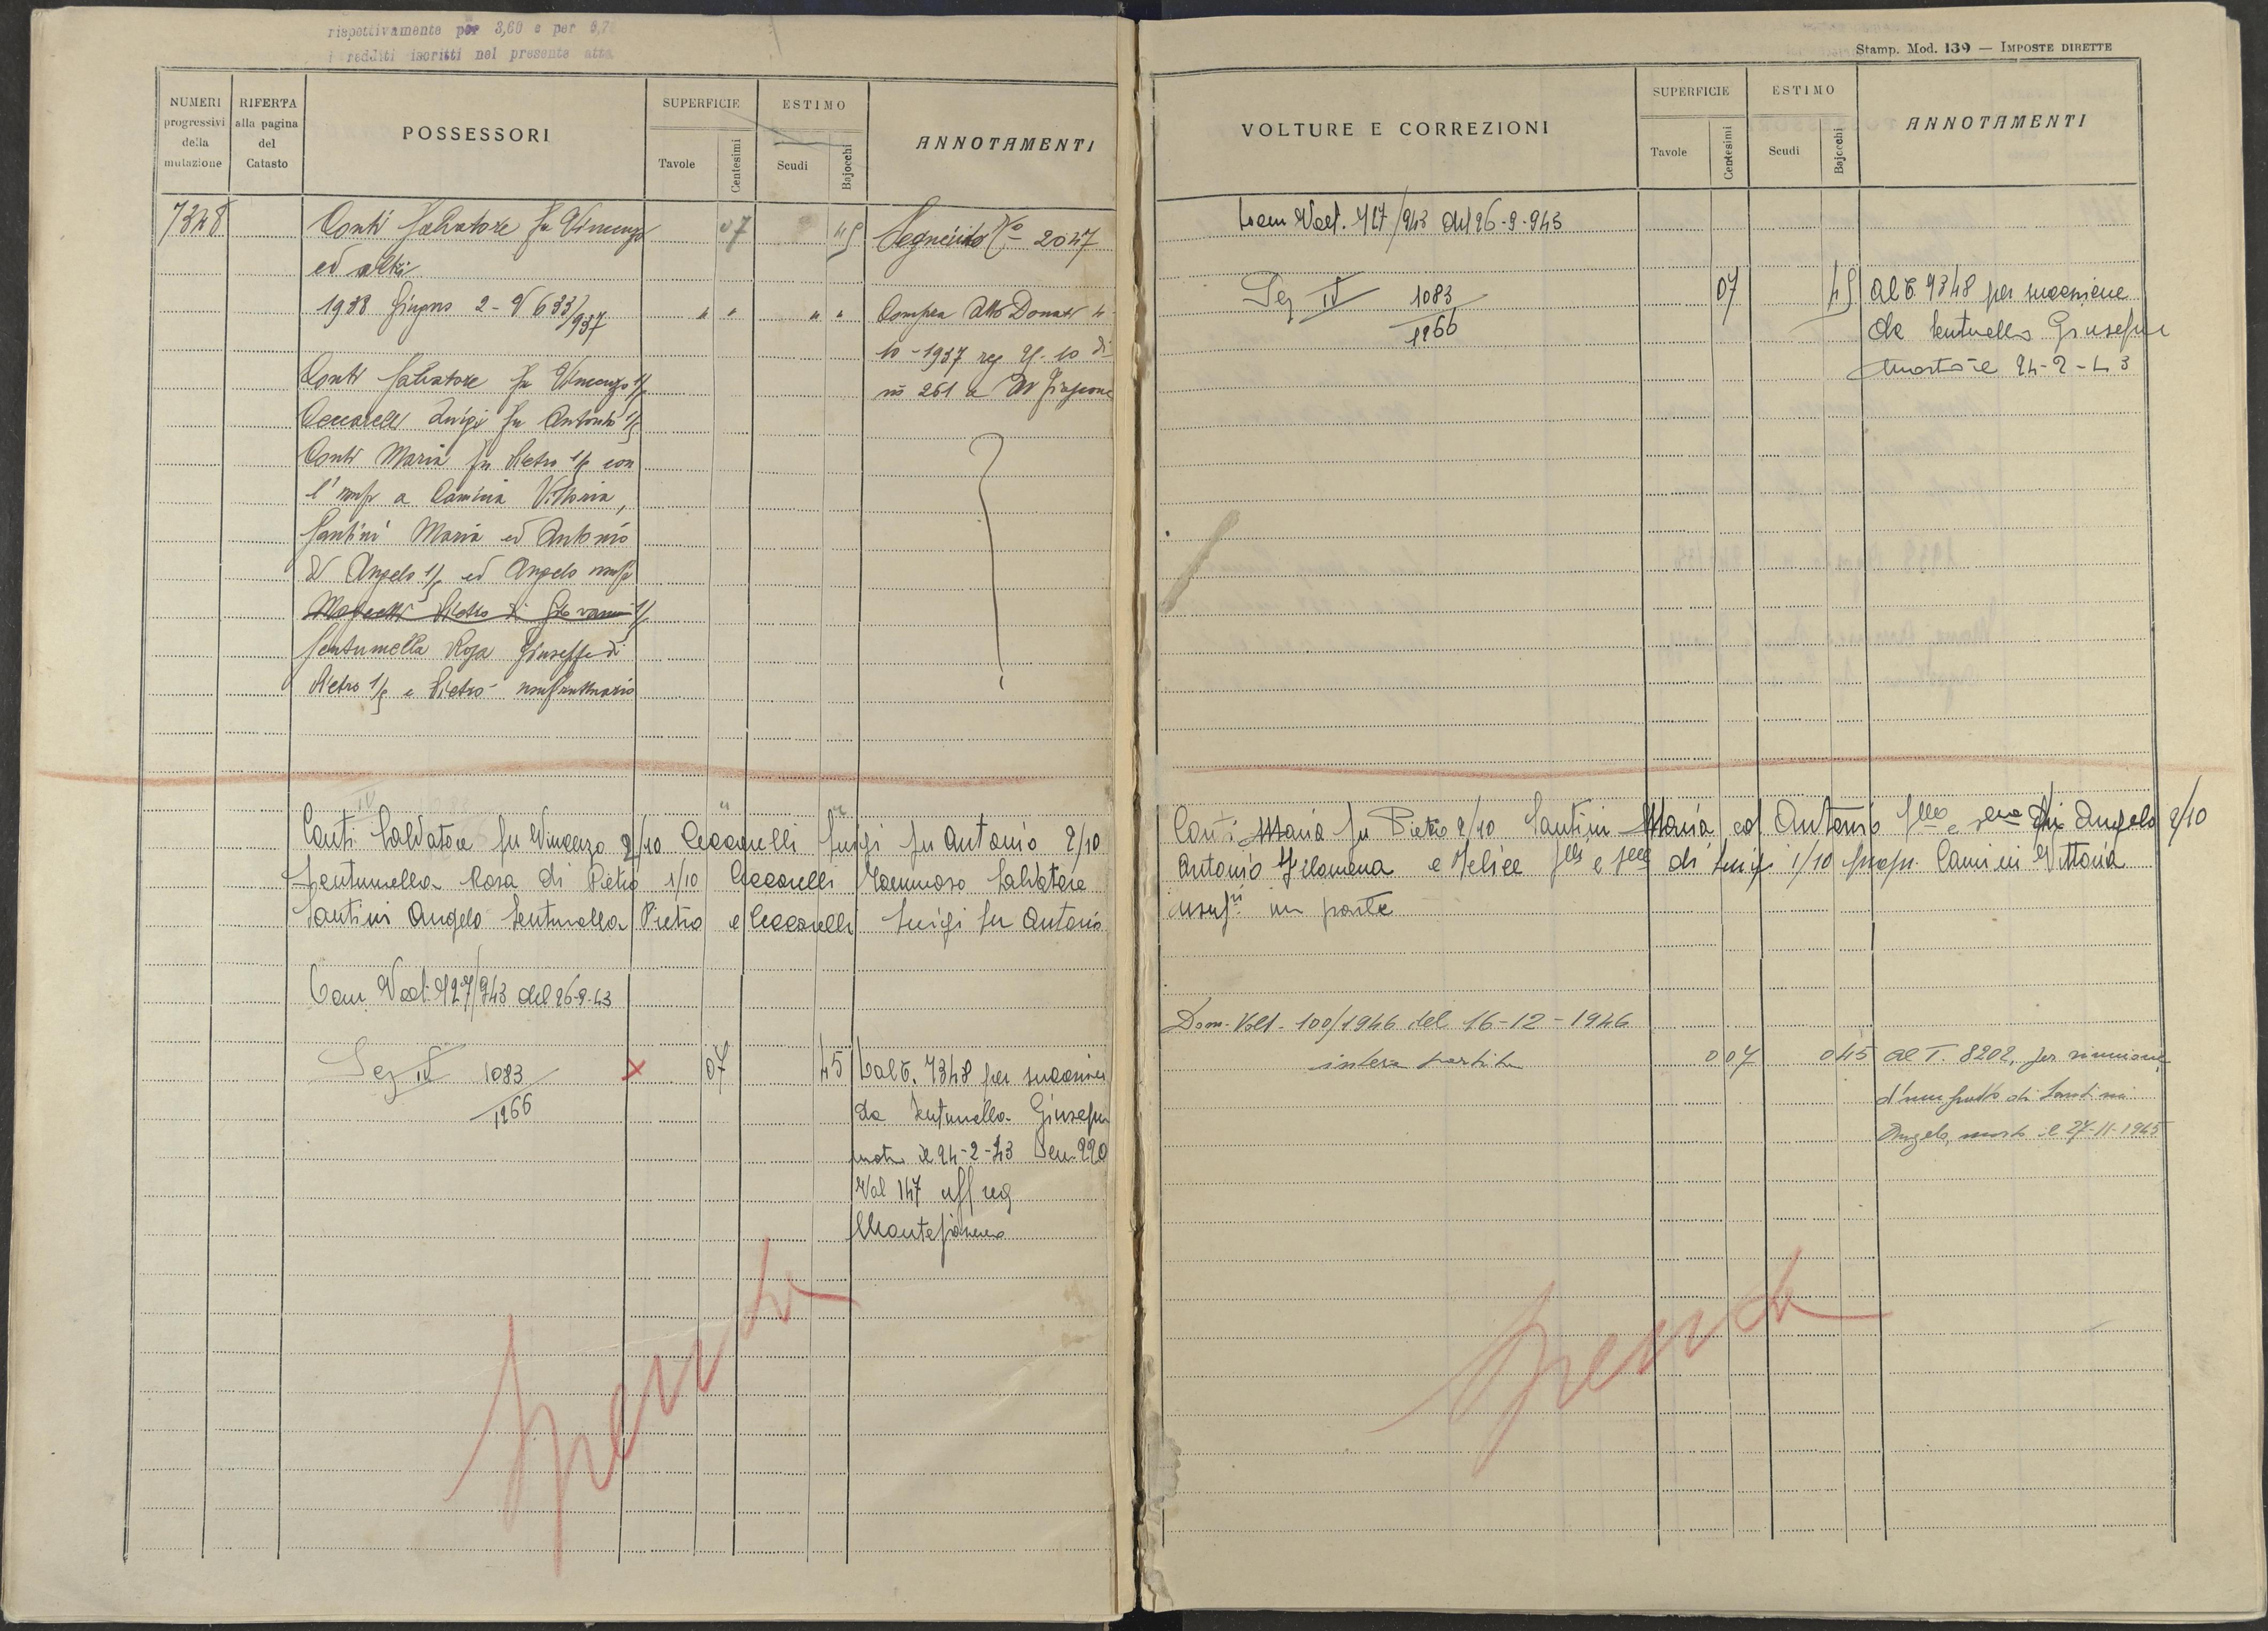 rispettivamente per 3,60 e per
redditi iscritti nel presente atto
NUMERI progressivi della mutazione
RIFERTA alla pagina del Catasto
POSSESSORI
SUPERFICIE
Tavole
Centesimi
ESTIMO
Scudi
Bajocchi
ANNOTAMENTI
7348
Conti Salvatore fu Vincenzo
07
45
Segue isto No 2047
ed altri
1938 Giugno 2 - V 633/937
" "
" "
Compra atto Donati 4-
10-1937 reg 9. 10 di
Conti Salvatore fu Vincenzo 1/5
no 261 a M Fiascone
Ceccarelli Luigi fu Antonio 1/5
Conti Maria fu Pietro 1/5 con
l'usuf a Camini Vittoria,
Santini Maria ed Antonio
di Angelo 1/5 ed Angelo usuf
Pietro di Giovanni 1/5
Sentumella Rosa Giuseppe di
Pietro 1/5 e Pietro usufruttuario
Conti Salvatore fu Vincenzo 2/10 Ceccarelli Luigi fu Antonio 2/10
Sentumella Rosa di Pietro 1/10 Ceccarelli Tommaso Salvatore
Santini Angelo Sentumella Pietro e Ceccarelli Luigi fu Antonio
Dom Volt. 427/943 del 26-9-43
Sez IV 1083/1266
x
07
45
Dal T. 7348 per successione
da Sentumella Giuseppe
morto il 24-2-43 Den 220
Vol 147 uff reg
Montefiascone
Spenta
Stamp. Mod. 139 — IMPOSTE DIRETTE
VOLTURE E CORREZIONI
SUPERFICIE
Tavole
Centesimi
ESTIMO
Scudi
Bajocchi
ANNOTAMENTI
Dom Volt. 427/943 del 26-9-943
Sez IV 1083/1266
07
45
Al T. 9348 per successione
da Sentumella Giuseppe
morto il 24-2-43
Conti Maria fu Pietro 2/10 Santini Maria ed Antonio flli e slle di Angelo 2/10
Antonio Filomena e Felice flli e slle di Luigi 1/10 propr. Camini Vittoria
usufri in parte
Dom. Volt. 100/1946 del 16-12-1946
intera partita
0 07
0 45
al T. 8202, per riunione
d'usufrutto di Santini
Angelo, morto il 27-11-1945
Spenta